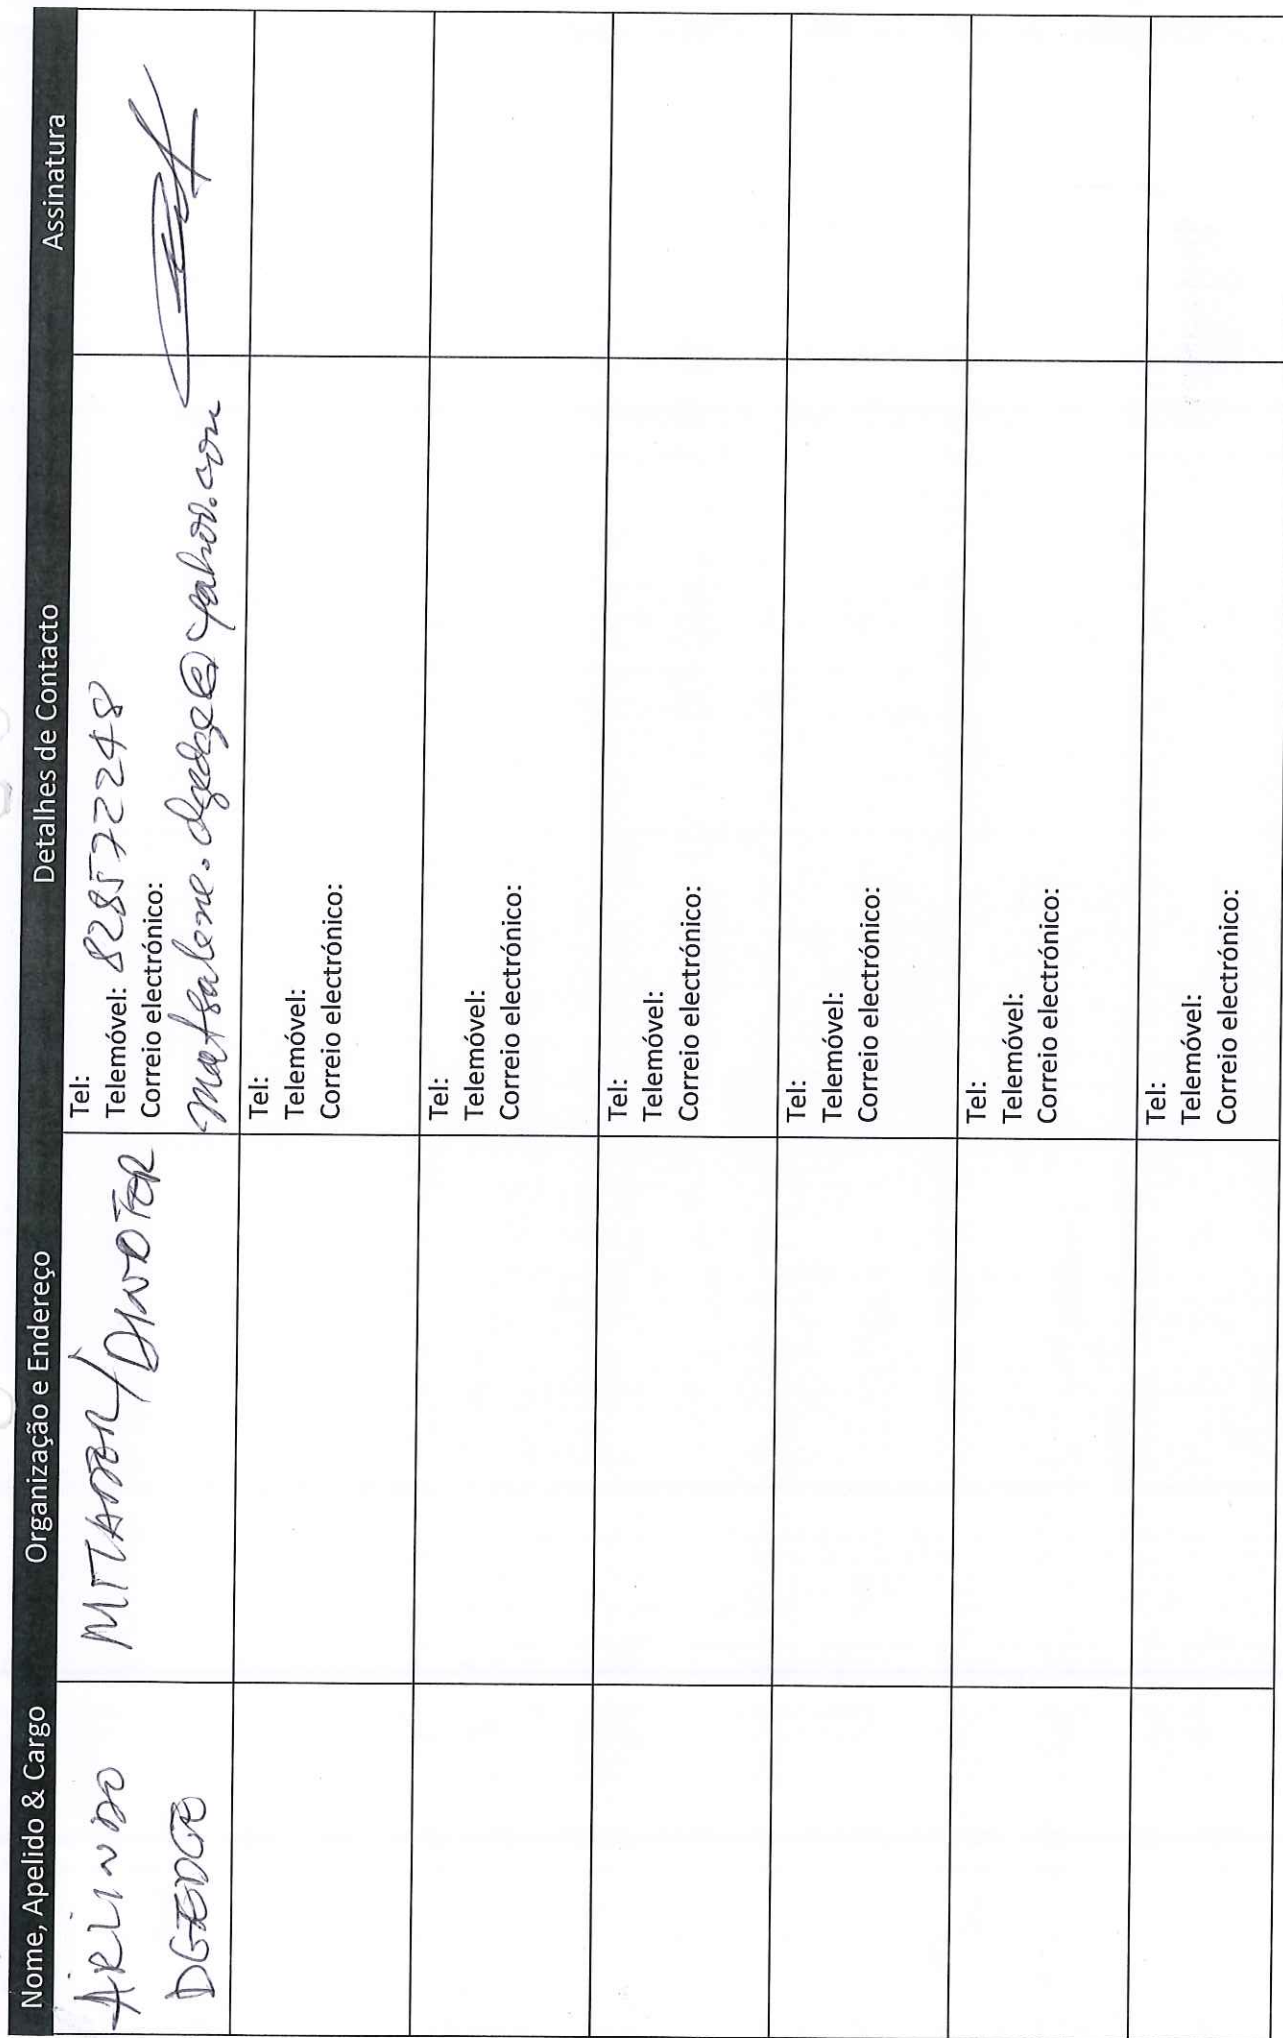 Nome, Apelido & Cargo Organização e Endereço Detalhes de Contacto Assinatura
ARLINDO
DGEDGE
MITADER/
DINOTER
Tel:
Telemóvel: 828572248
Correio electrónico:
matsalene.dgedge@yahoo.com
Tel:
Telemóvel:
Correio electrónico:
Tel:
Telemóvel:
Correio electrónico:
Tel:
Telemóvel:
Correio electrónico:
Tel:
Telemóvel:
Correio electrónico:
Tel:
Telemóvel:
Correio electrónico:
Tel:
Telemóvel:
Correio electrónico: